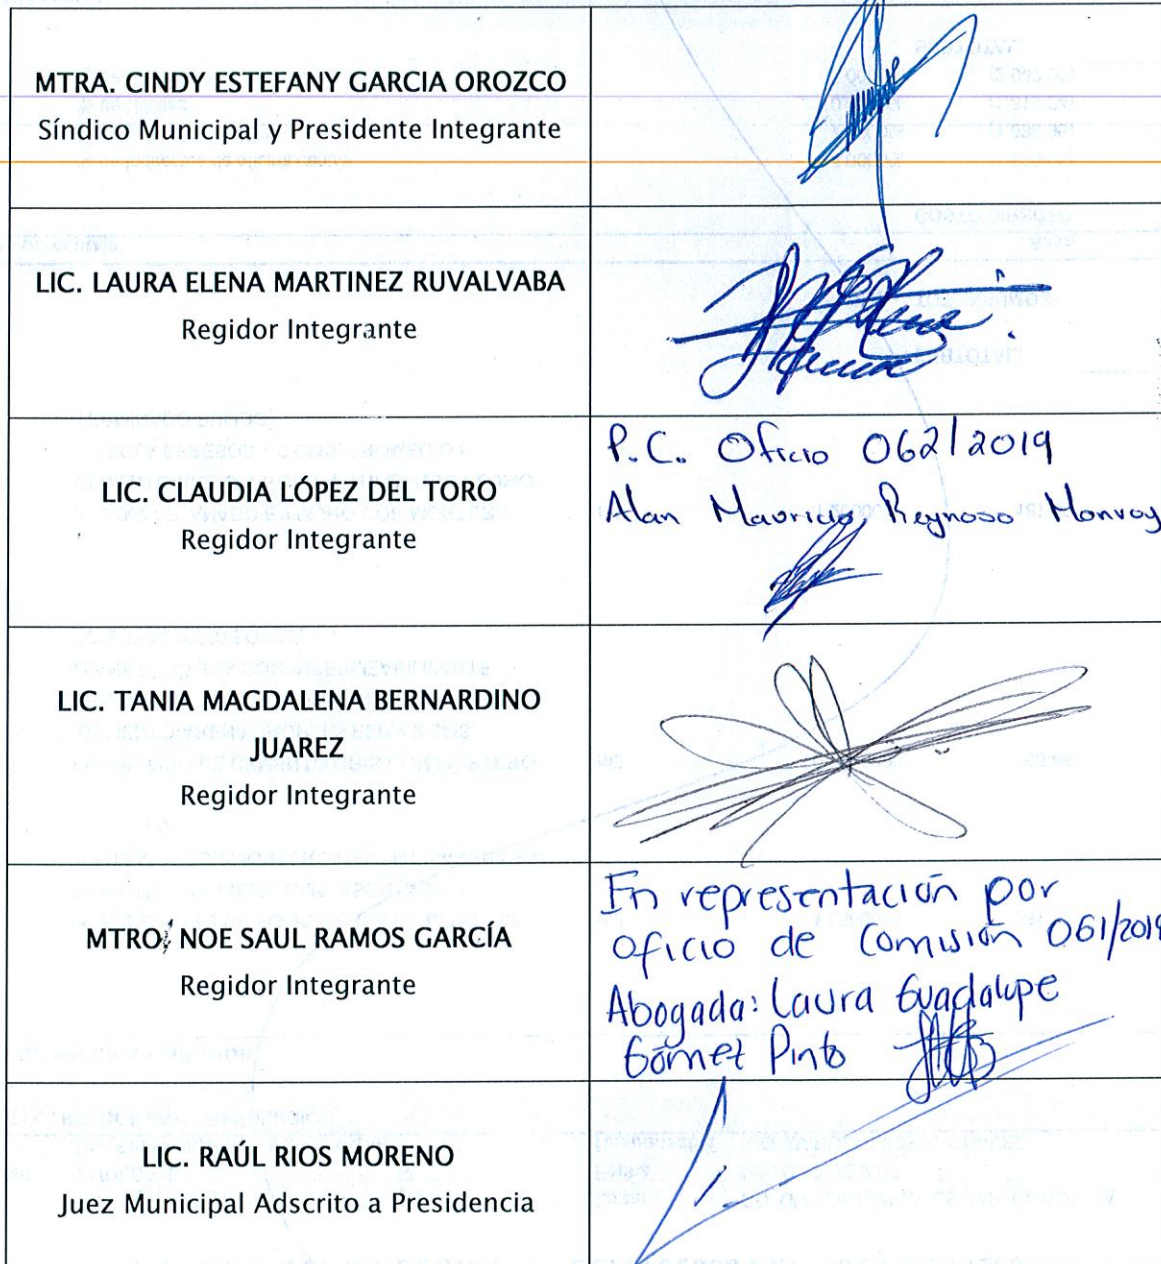 MTRA. CINDY ESTEFANY GARCIA OROZCO
Síndico Municipal y Presidente Integrante
LIC. LAURA ELENA MARTINEZ RUVALVABA
Regidor Integrante
LIC. CLAUDIA LÓPEZ DEL TORO
Regidor Integrante
P.C. Oficio 062/2019
Alan Mauricio Reynoso Monroy
LIC. TANIA MAGDALENA BERNARDINO
JUAREZ
Regidor Integrante
MTRO. NOE SAUL RAMOS GARCÍA
Regidor Integrante
En representación por
oficio de Comisión 061/2019
Abogada: Laura Guadalupe
Gómez Pinto
LIC. RAÚL RIOS MORENO
Juez Municipal Adscrito a Presidencia